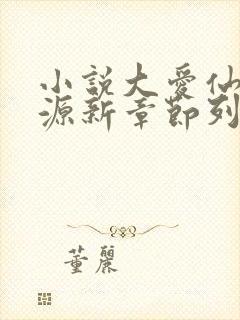 小說大愛仙
源新章節列
董麗